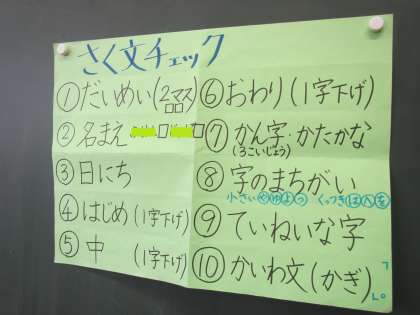 さく文チェック
①だいめい(2マス)
②名まえ
③日にち
④はじめ(1字下げ)
⑤中 (1字下げ)
⑥おわり(1字下げ)
⑦かん字・かたかな
(3こいじょう)
⑧字のまちがい
小さいやゆよっ くっつきはへを
⑨ていねいな字
⑩かいわ文(かぎ)
「
」。